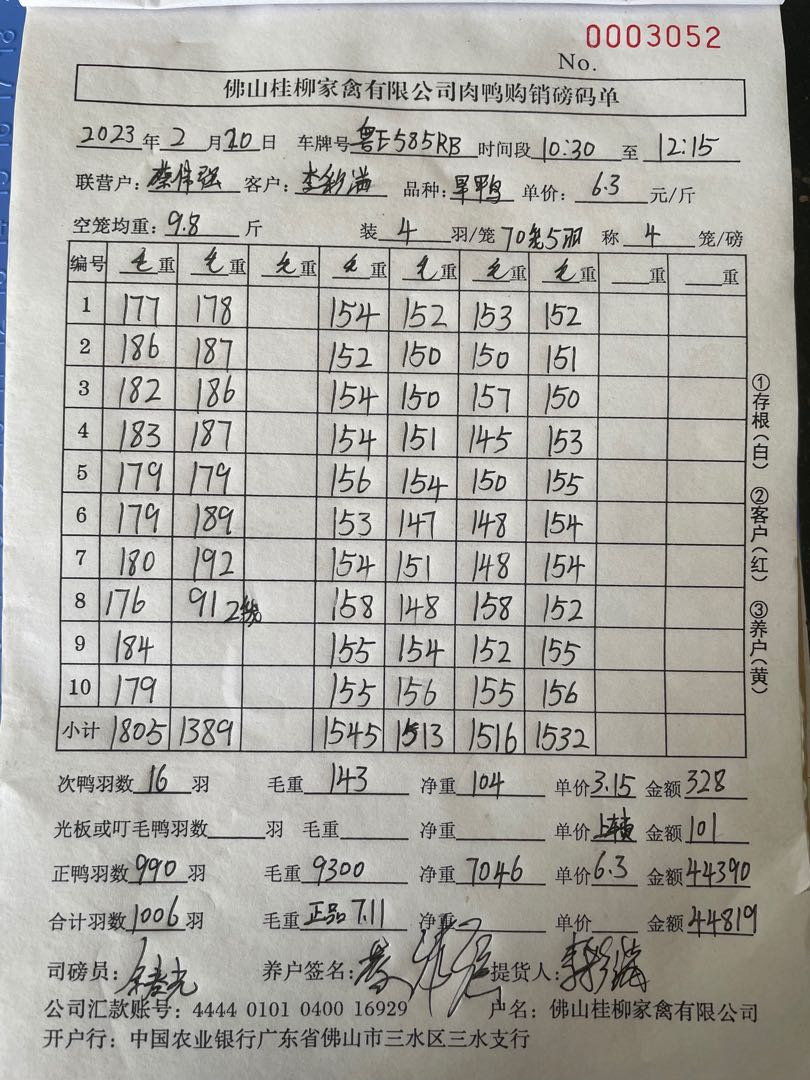 0003052
No.
佛山桂柳家禽有限公司肉鸭购销磅码单
2023年2月20日 车牌号粤E585RB 时间段10:30至12:15
联营户:蔡伟强 客户:李彩满 品种:旱鸭 单价:6.3元/斤
空笼均重:9.8斤 装4羽/笼 70笼5羽 称4笼/磅
编号 毛重 毛重 毛重 毛重 毛重 毛重 毛重 重 重
1 177 178 154 152 153 152
2 186 187 152 150 150 151
3 182 186 154 150 157 150
4 183 187 154 151 145 153
5 179 179 156 154 150 155
6 179 189 153 147 148 154
7 180 192 154 151 148 154
8 176 91 2笼 158 148 158 152
9 184 155 154 152 155
10 179 155 156 155 156
小计 1805 1389 1545 1513 1516 1532
次鸭羽数16羽 毛重143 净重104 单价3.15 金额328
光板或叮毛鸭羽数 羽 毛重 净重 单价 金额101
正鸭羽数990羽 毛重9300 净重7046 单价6.3 金额44390
合计羽数1006羽 毛重正品7.11 净重 单价 金额44819
司磅员: 养户签名: 提货人:李彩满
公司汇款账号:4444 0101 0400 16929 户名:佛山桂柳家禽有限公司
开户行:中国农业银行广东省佛山市三水区三水支行
①存根(白) ②客户(红) ③养户(黄)